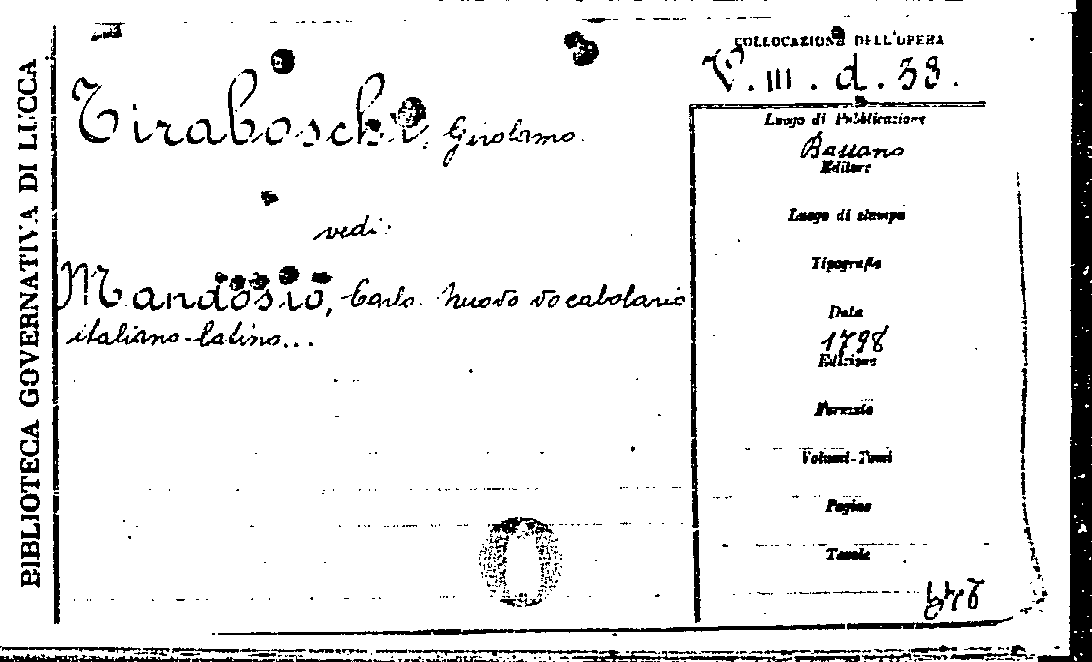 BIBLIOTECA GOVERNATIVA DI LUCCA
COLLOCAZIONE DELL'OPERA
V. III. d. 38.
Tiraboschi, Girolamo.
vedi:
Mandosio, Carlo. Nuovo vocabolario
italiano-latino...
Luogo di Pubblicazione
Bassano
Editore
Luogo di stampa
Tipografia
Data
1798
Edizione
Formato
Volumi-Tomi
Pagine
Tavole